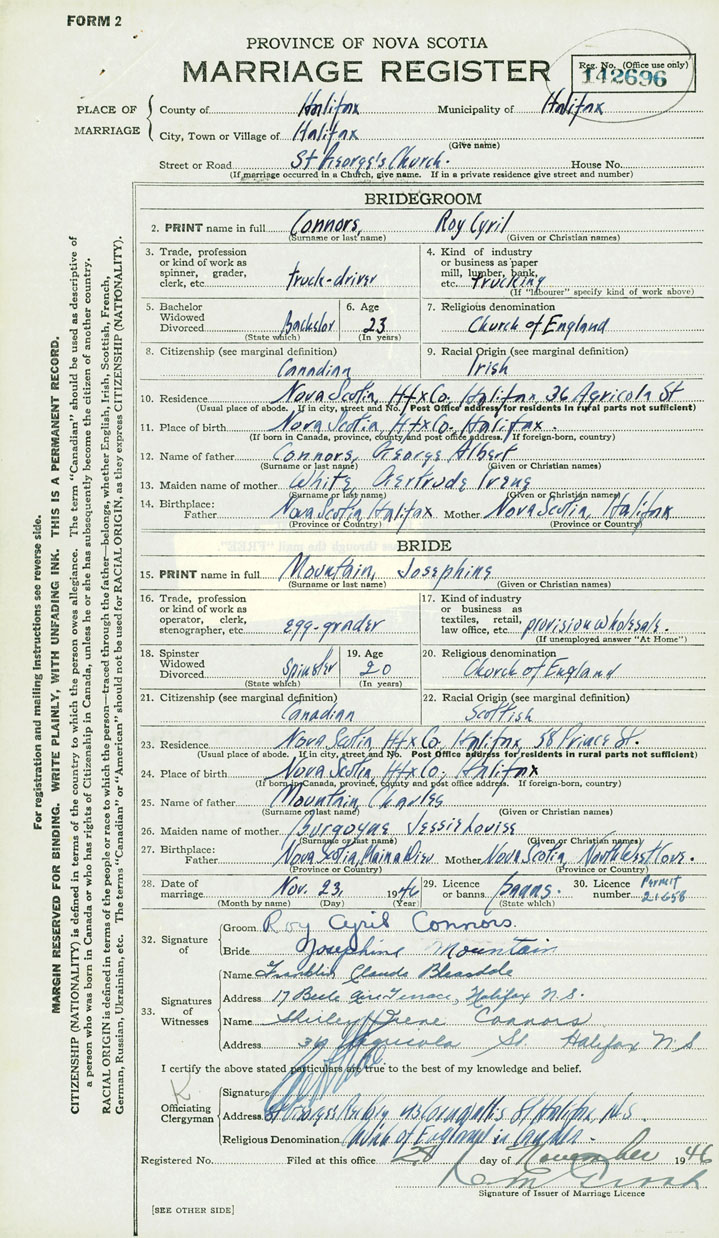 FORM 2
PROVINCE OF NOVA SCOTIA
MARRIAGE REGISTER
Reg. No. (Office use only)
142696
PLACE OF MARRIAGE
County of Halifax Municipality of Halifax
City, Town or Village of Halifax
(Give name)
Street or Road St George's Church. House No.
(If marriage occurred in a Church, give name. If in a private residence give street and number)
BRIDEGROOM
2. PRINT name in full Connors, Roy Cyril
(Surname or last name) (Given or Christian names)
3. Trade, profession or kind of work as spinner, grader, clerk, etc. truck-driver
4. Kind of industry or business as paper mill, lumber, bank, etc. Trucking
(If "labourer" specify kind of work above)
5. Bachelor Widowed Divorced Bachelor
(State which)
6. Age 23
(In years)
7. Religious denomination
Church of England
8. Citizenship (see marginal definition)
Canadian
9. Racial Origin (see marginal definition)
Irish
10. Residence Nova Scotia, Hfx Co. Halifax, 36 Agricola St
(Usual place of abode. If in city, street and No. Post Office address for residents in rural parts not sufficient)
11. Place of birth Nova Scotia, Hfx Co. Halifax.
(If born in Canada, province, county and post office address. If foreign-born, country)
12. Name of father Connors, George Albert
(Surname or last name) (Given or Christian names)
13. Maiden name of mother White, Gertrude Irene
(Surname or last name) (Given or Christian names)
14. Birthplace: Father Nova Scotia Halifax Mother Nova Scotia, Halifax
(Province or Country) (Province or Country)
BRIDE
15. PRINT name in full Mountain, Josephine
(Surname or last name) (Given or Christian names)
16. Trade, profession or kind of work as operator, clerk, stenographer, etc. egg-grader
17. Kind of industry or business as textiles, retail, law office, etc. provision wholesale.
(If unemployed answer "At Home")
18. Spinster Widowed Divorced Spinster
(State which)
19. Age 20
(In years)
20. Religious denomination
Church of England
21. Citizenship (see marginal definition)
Canadian
22. Racial Origin (see marginal definition)
Scottish
23. Residence Nova Scotia, Hfx Co. Halifax, 58 Prince St.
(Usual place of abode. If in city, street and No. Post Office address for residents in rural parts not sufficient)
24. Place of birth Nova Scotia, Hfx Co. Halifax
(If born in Canada, province, county and post office address. If foreign-born, country)
25. Name of father Mountain, Charles
(Surname or last name) (Given or Christian names)
26. Maiden name of mother Burgoyne Jessie Louise
(Surname or last name) (Given or Christian names)
27. Birthplace: Father Nova Scotia, Main a Dieu. Mother Nova Scotia, North West Cove.
(Province or Country) (Province or Country)
28. Date of marriage Nov. 23, 1946
(Month by name) (Day) (Year)
29. Licence or banns banns.
(State which)
30. Licence number Permit 21658
32. Signature of
Groom Roy Cyril Connors.
Bride Josephine Mountain
33. Signatures of Witnesses
Name Franklin Claude
Address 17 Terrace, Halifax N.S.
Name Shirley Irene Connors
Address Agricola St. Halifax N S
I certify the above stated particulars are true to the best of my knowledge and belief.
Officiating Clergyman
Signature
Address St George's St, Halifax, N.S.
Religious Denomination Church of England in Canada.
Registered No. Filed at this office 28 day of November 1946
Signature of Issuer of Marriage Licence
[SEE OTHER SIDE]
For registration and mailing instructions see reverse side.
MARGIN RESERVED FOR BINDING. WRITE PLAINLY, WITH UNFADING INK. THIS IS A PERMANENT RECORD.
CITIZENSHIP (NATIONALITY) is defined in terms of the country to which the person owes allegiance. The term "Canadian" should be used as descriptive of
a person who was born in Canada or who has rights of Citizenship in Canada, unless he or she has subsequently become the citizen of another country.
RACIAL ORIGIN is defined in terms of the people or race to which the person—traced through the father—belongs, whether English, Irish, Scottish, French,
German, Russian, Ukrainian, etc. The terms "Canadian" or "American" should not be used for RACIAL ORIGIN, as they express CITIZENSHIP (NATIONALITY).